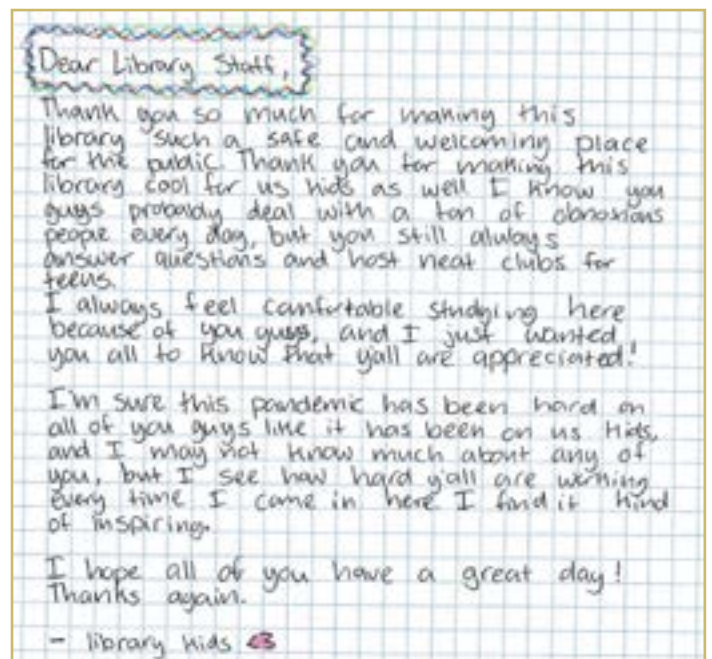 Dear Library Staff,
Thank you so much for making this
library such a safe and welcoming place
for the public. Thank you for making this
library cool for us kids as well I know you
guys probaldy deal with a ton of obnoxious
people every day, but you still always
answer questions and host neat clubs for
teens.
I always feel comfortable studying here
because of you guys, and I just wanted
you all to know that yall are appreciated!
I'm sure this pandemic has been hard on
all of you guys like it has been on us kids,
and I may not know much about any of
you, but I see how hard yall are working
every time I come in here I find it kind
of inspiring.
I hope all of you have a great day!
Thanks again.
- library kids <3